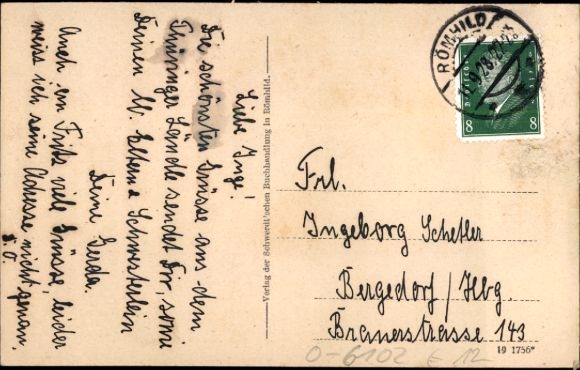 Liebe Inge!
Die schönsten Grüsse aus dem
Thüringer Ländle sendet Dir sowie
Deinen lb. Eltern u. Schwesterlein
Deine Gerda.
Auch an Fritz viele Grüsse, leider
weiss ich seine Adresse nicht genau.
D.O.
Verlag der Schwerdt'schen Buchhandlung in Römhild.
RÖMHILD
8 8
Frl.
Ingeborg Schetler
Bergedorf/Hbg.
Brauerstrasse 143
19 1756*
O-6102 E 12